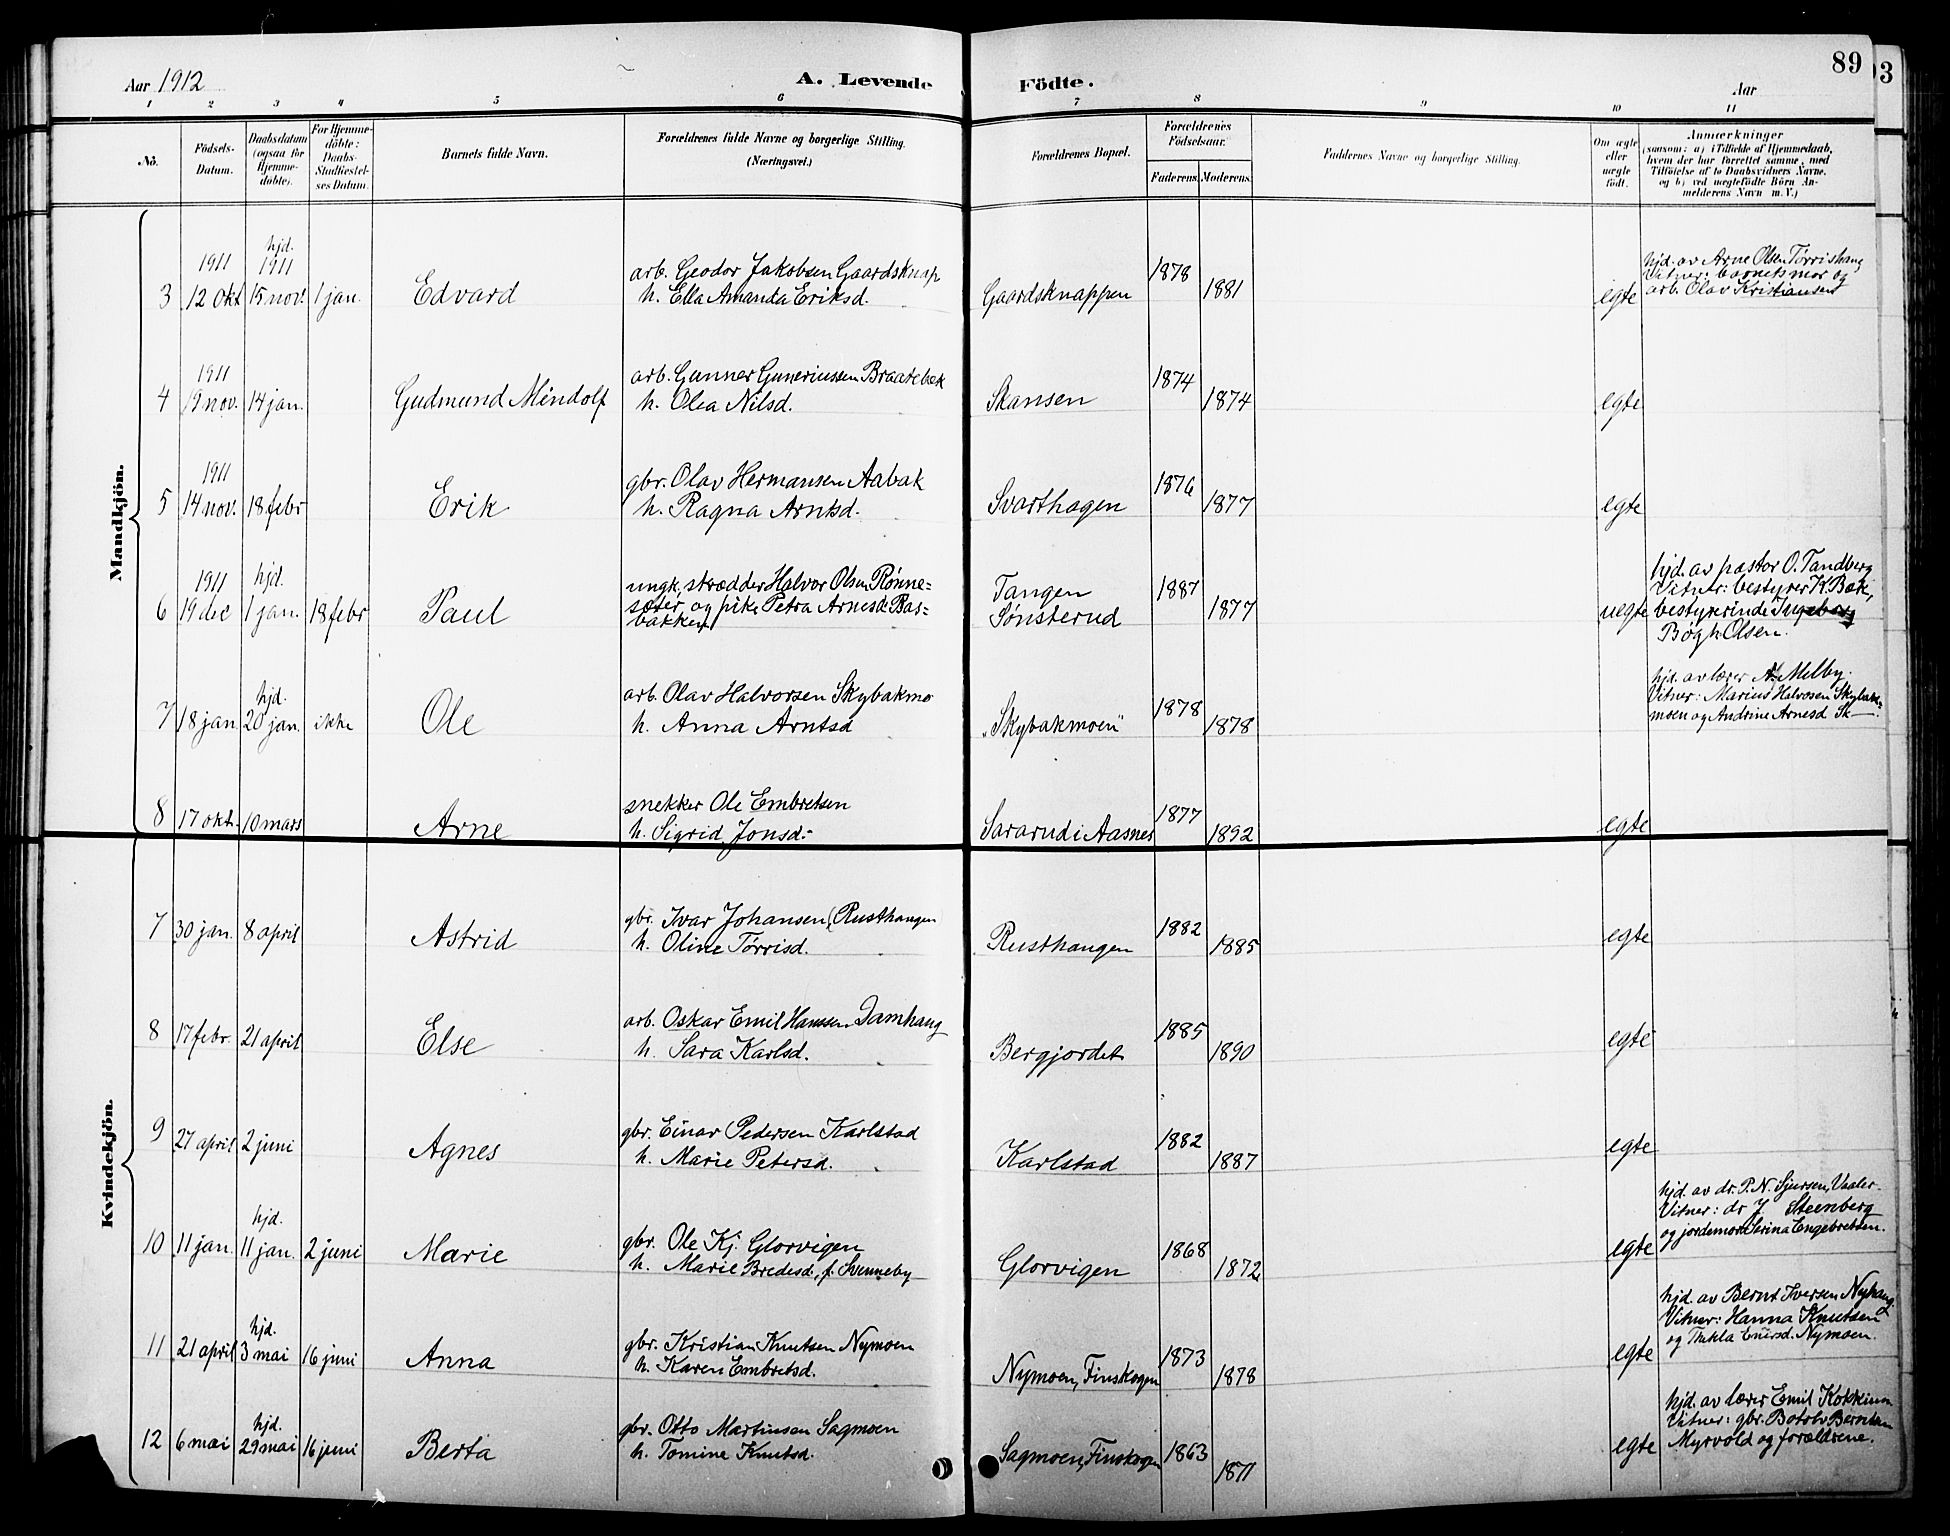 Aar 1912
A. Levende
Födte.
Aar
89
93
1 2 3 4 5 6 7 8 9 10 11
No.
Födsels-
Datum.
Daabsdatum
(ogsaa for
Hjemme-
döbte).
For Hjemme-
döbte:
Daabs-
Stadfæstel-
ses Datum.
Barnets fulde Navn.
Forældrenes fulde Navne og borgerlige Stilling.
(Næringsvei.)
Forældrenes Bopæl.
Forældrenes
Födselsaar.
Faderens. Moderens.
Faddernes Navne og borgerlige Stilling.
Om ægte
eller
uægte
födt.
Anmærkninger
(saasom: a) i Tilfælde af Hjemmedaab,
hvem der har forrettet samme, med
Tilföielse af to Daabsvidners Navne,
og b) ved uægtefödte Börn An-
melderens Navn m. V.)
Mandkjön.
1911 hjd. 1911
3 12 okt 15 nov. 1 jan. Edvard
arb. Geodor Jakobsen Gaardsknap
h. Ella Amanda Eriksd.
Gaardsknappen 1878 1881 egte
hjd. av Arne Olsen Tørrishaug
Vitner: barnets mor og
arb. Olav Kristiansen
1911
4 19 nov. 14 jan. Gudmund Mindolf
arb. Gunner Guneriussen Braatebæk
h. Olea Nilsd.
Skansen 1874 1874 egte
1911
5 14 nov. 18 febr Erik
gbr. Olav Hermansen Aabak
h. Ragna Arntsd.
Svarthagen 1876 1877 egte
1911 hjd.
6 19 dec 1 jan. 18 febr Paul
ungk. strædder Halvor Olsen Rønne=
sæter, og pike Petra Arnesd. Bas=
bakken
Tangen
Sønsterud 1887 1877 uegte
hjd. av pastor O. Tandberg
Vitner: bestyrer K. Bæk,
bestyrerinde Ingeborg
Bøgh Olsen.
hjd.
7 18 jan. 20 jan. ikke Ole
arb. Olav Halvorsen Skybakmo
h. Anna Arntsd
"Skybakmoen" 1878 1878
hjd. av lærer N. Melby.
Vitner: Marius Halvosen Skybak=
moen og Andrine Arnesd Sk—.
8 17 okt. 10 mars Arne
snekker Ole Embretsen
h. Sigrid Jonsd.
Sararud i Aasnes 1877 1892 egte
Kvindekjön.
7 30 jan. 8 april Astrid
gbr. Ivar Johansen (Rusthaugen)
h. Oline Tørrisd.
Rusthaugen 1882 1885 egte
8 17 febr. 21 april Else
arb. Oskar Emil Hanssen Damhaug
h. Sara Karlsd.
Bergjordet 1885 1890 egte
9 27 april 2 juni Agnes
gbr. Einar Pedersen Karlstad
h. Marie Petersd.
Karlstad 1882 1887 egte
hjd.
10 11 jan. 11 jan. 2 juni Marie
gbr. Ole Kj. Glorvigen
h. Marie Bredesd., f. Svenneby
Glorvigen 1868 1872 egte
hjd. av dr. P. N. Sjursen, Vaaler.
Vitner: dr J Steenberg
og jordemor Serina Engebretsen.
hjd.
11 21 april 3 mai 16 juni Anna
gbr. Kristian Knutsen Nymoen
h. Karen Embretsd.
Nymoen, Finskogen 1873 1878 egte
hjd. av Bernt Iversen Nyhaug
Vitner: Hanna Knutsen
og Thekla Enersd. Nymoen.
hjd.
12 6 mai 29 mai 16 juni Berta
gbr. Otto Martinsen Sagmoen
h. Tomine Knutsd.
Sagmoen, Finskogen 1863 1871 egte
hjd. av lærer Emil Kokkinn
Vitner: gbr. Botolv Berntsen
Myrvold og forældrene.